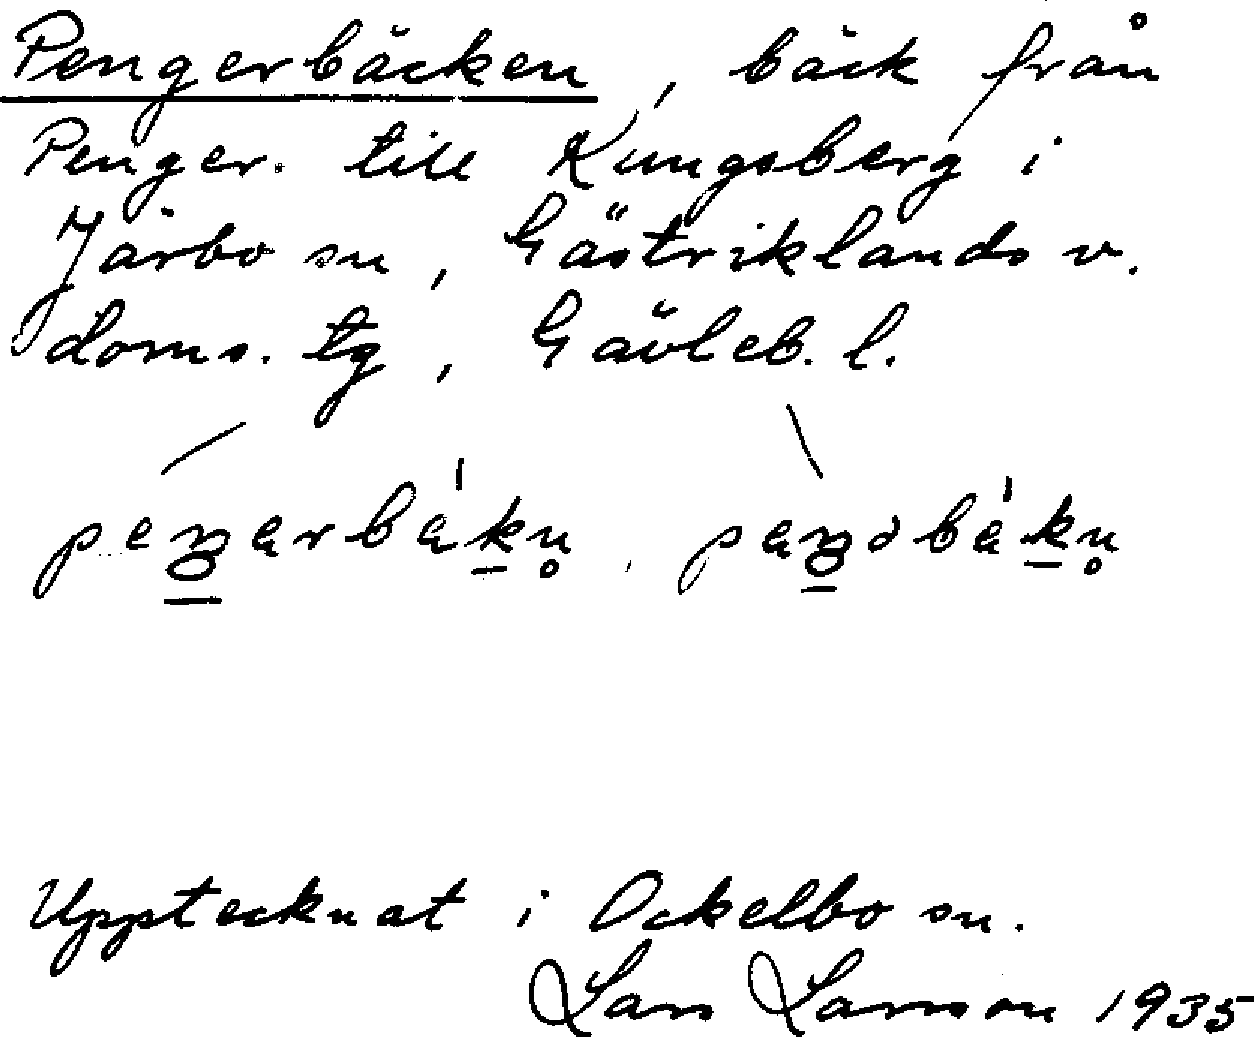 Pengerbäcken, bäck från
Penger. till Kungsberg i
Järbo sn, Gästriklands v.
doms. tg, Gävleb. l.
Upptecknat i Ockelbo sn.
Lars Larsson 1935